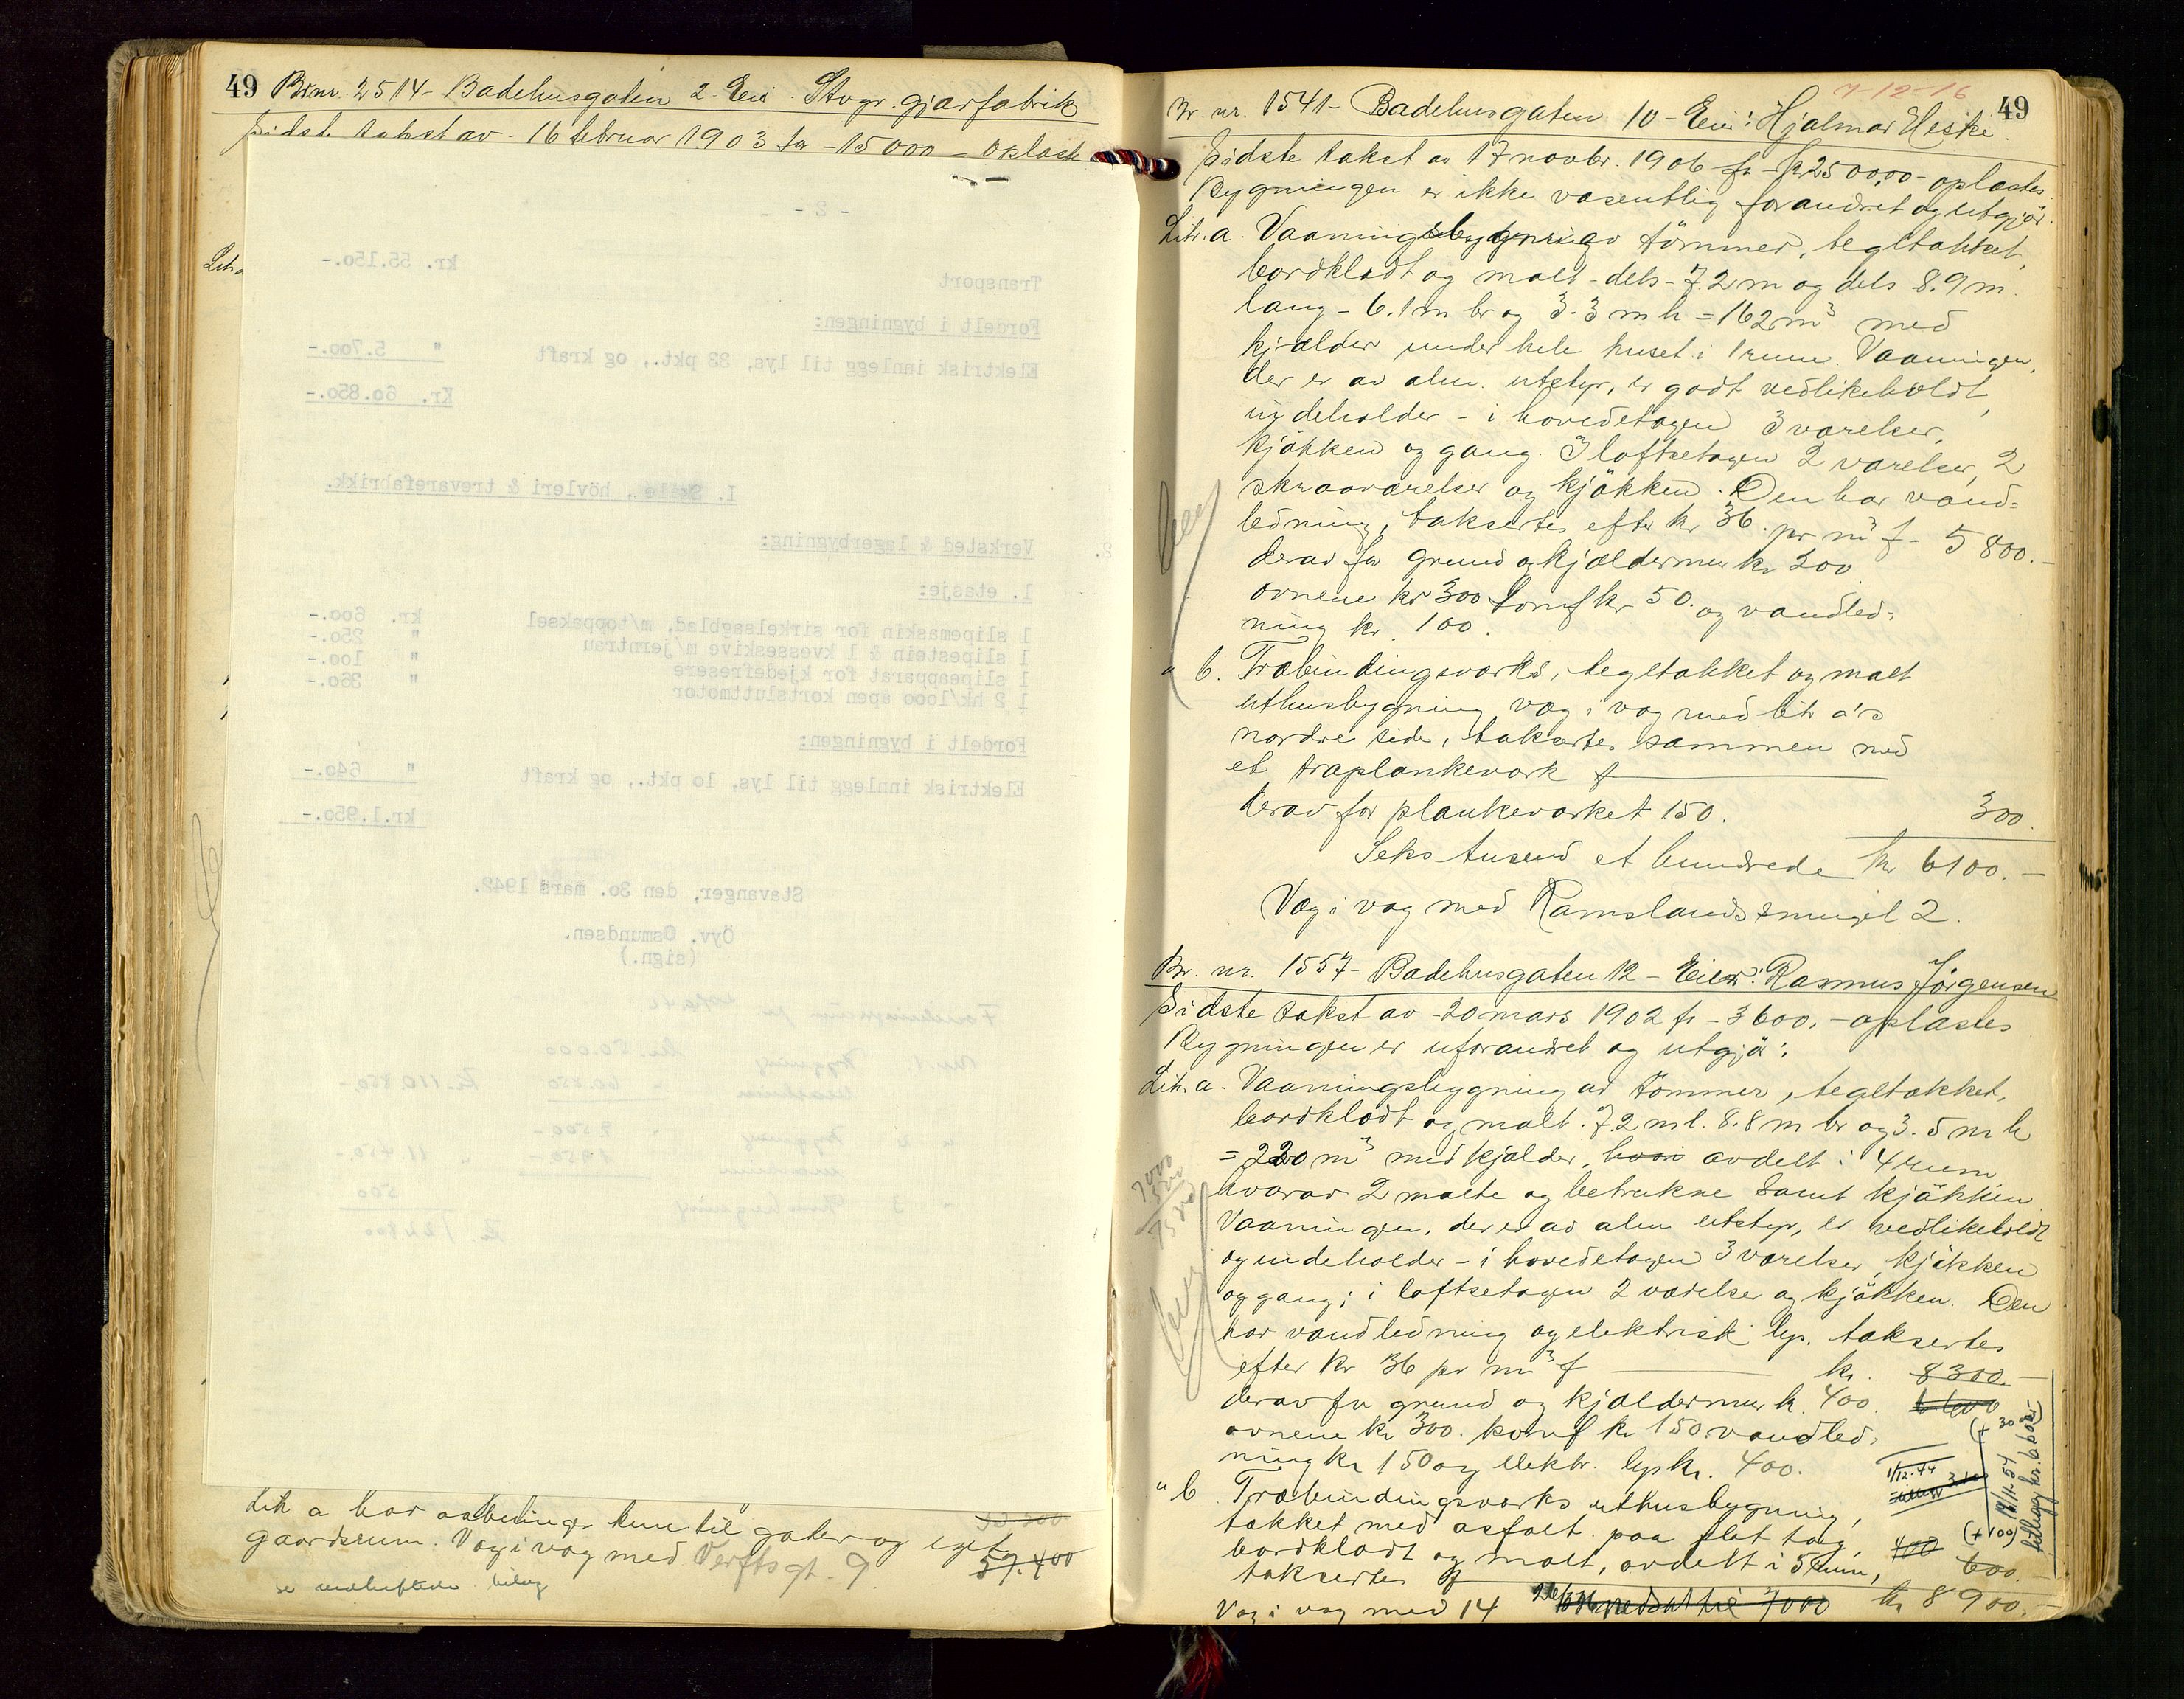 49 Br.nr. 2514 - Badehusgaten 2 - Eier: Stvgr. gjærfabrik
Sidste takst av - 16 februar 1903 for - 15000 - oplæstes
Litr. a
- 2 -
Transport kr. 55.150.-
Fordelt i bygningen:
Elektrisk innlegg til lys, 33 pkt., og kraft " 5.700.-
Kr. 60.850.-
I. Skåle, hövleri & trevarefabrikk.
2. Verksted & lagerbygning:
1. etasje:
1 slipemaskin for sirkelsagblad, m/toppaksel kr. 600.-
1 slipestein & 1 kvesseskive m/jerntrau " 250.-
1 slipeapparat for kjedefresere " 100.-
1 2 hk/1000 åpen kortsluttmotor " 360.-
Fordelt i bygningen:
Elektrisk innlegg til lys, 10 pkt., og kraft " 640.-
kr. 1.950.-
Stavanger, den 30. mars 1942.
Öyv. Osmundsen.
(sign.)
Nr. 1 bygning kr. 50.000
maskiner " 60.850 kr. 110.850.-
" 2 bygning " 9500 -
maskiner 1950 - " 11.450.-
" 3 500
Litr a har aabninger kun til gaten og eget
gaardsrum. Væg i væg med Verftsgt. 9. 57.400
se vedheftede bilag
7-12-16
49
Br. nr. 1541 - Badehusgaten 10 - Eier: Hjalmar Heske.
Sidste takst av 17 novbr. 1906 for kr 25000,00 - oplæstes.
Bygningen er ikke væsentlig forandret og utgjør:
Litr. a. Vaaningsbygning av tömmer, tegltækket,
bordklædt og malt - dels - 7.2 m og dels 8.9 m.
lang - 6.1 m br og 3.3 m h = 162 m³ med
kjælder under hele huset i 1 rum. Vaaningen,
der er av alm. utstyr, er godt vedlikeholdt,
indeholder - i hovedetagen 3 værelser,
kjökken og gang. I loftsetagen 2 værelser, 2
skraaværelser og kjökken. Den har vand-
ledning, takseres efter kr 36. pr m³ f - 5 800.-
derav for grund og kjældermur kr 300
ovnene kr 300 komf kr 50. og vandled-
ning kr. 100.
" b. Træbindingsværks, tegltækket og malt
uthusbygning væg i væg med litr a's
nordre side, takseres sammen med
et træplankeværk f
derav for plankeværket 150. 300.
Seks tusend et hundrede kr 6100.-
Væg i væg med Ramslandssmuget 2.
Br. nr. 1557 - Badehusgaten 12 - Eier: Rasmus Jörgensen
Sidste takst av - 20 mars 1902 fr - 3600.- oplæstes
Bygningen er uforandret og utgjör:
Litr. a. Vaaningsbygning av tömmer, tegltækket,
bordklædt og malt. 7.2 m l. 8.8 m br og 3.5 m h
= 220 m³ med kjælder, hvori avdelt i 4 rum
hvorav 2 malte og betrukne samt kjökken
Vaaningen, der er av alm utstyr, er vedlikeholdt
og indeholder - i hovedetagen 3 værelser, kjökken
og gang; i loftsetagen 2 værelser og kjökken. Den
har vandledning og elektrisk lys. takseres
efter kr 36 pr m³ f kr. 8300.-
derav for grund og kjældermur kr. 400.
ovnene kr 300. komf kr 150. vandled-
ning kr 150 og elektr. lys kr. 400.
" b Træbindingsværks uthusbygning,
tækket med asfalt paa flat tag,
bordklædt og malt, avdelt i 5 rum, 400 (+100)
takseres f 600.-
Væg i væg med 14 nedsat til 7000 kr 8900.-
7000
1/12-44 tillegg
19/11-54
tillegg kr.